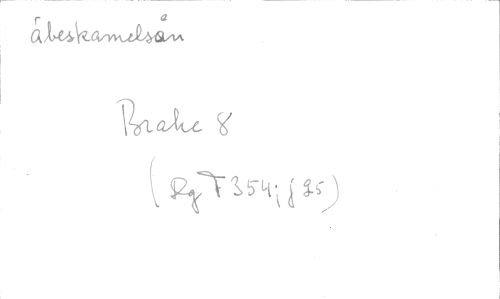 åbeskamelsån
Brahe 8
(Rg T 354; j 25)